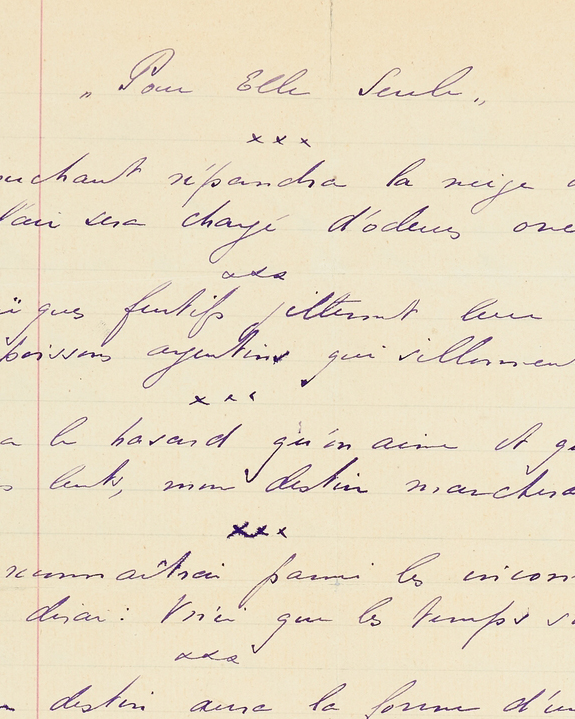 „ Pour Elle Seule „
x x x
ouchant répandra la neige
l'air sera chargé d'odeurs
x x x
furtifs jetteront leur
poissons argentins qui sillonnent
x x x
le hasard qu'on aime et
lents, mon destin marchera
x x x
reconnaîtrai parmi les incon
dirai : Voici que les temps s
x x x
destin aura la forme d'un